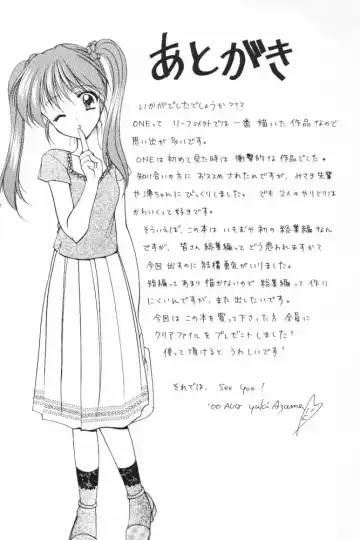 あとがき
いかがでしたでしょうか???
ONEって リーフェスェクトでは 一番 描いた 作品 なので
思い出が 多いです。
ONEは 初めて 見た時は 衝撃的 な 作品でした。
知り合いの方に おススメ されたんですが, みさき先輩
や 澪ちゃんに びっくりしました。 でも 2人の やりとりは
かわいくって 好きです。
そういえば、この本は いもまや 初の 総集編 なん
ですが, 皆さん 総集編って どう 思われますか?
今回 出すのに 結構 勇気が いりました。
短編って あまり 描かないので 総集編って 作り
にくいんですが、また 出したいです。
今回は この本を 買って 下さった方 全員に
クリアファイルを プレゼント しました!
使って 頂けると うれしいです!
それでは、 See you!
'00 AUG Yuki Azuma